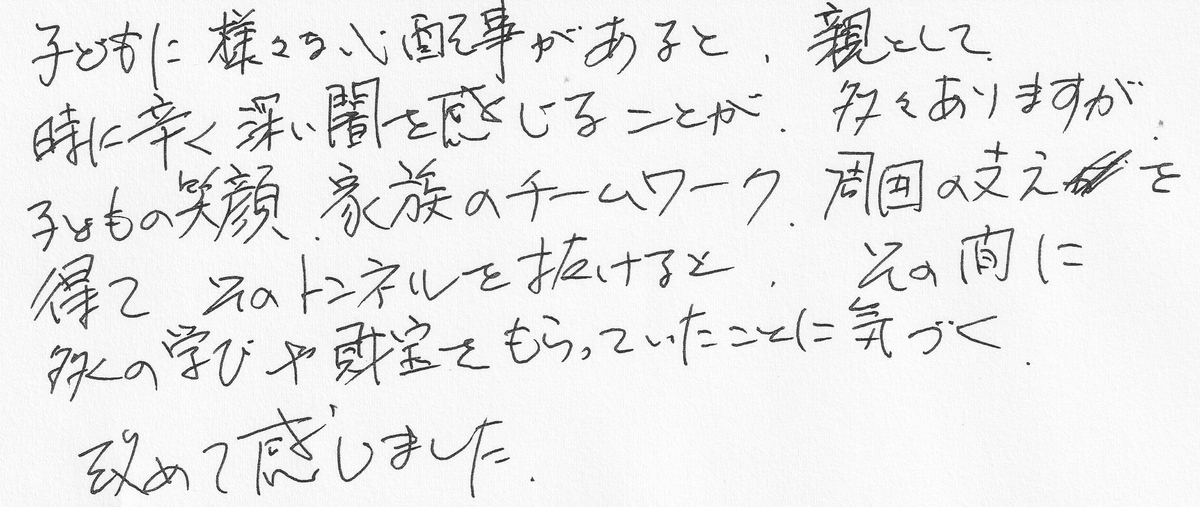 子どもに様々な心配事があると、親として
時に辛く深い闇を感じることが、多々ありますが、
子どもの笑顔、家族のチームワーク、周囲の支えを
得て そのトンネルを抜けると、その間に
多くの学びや財宝をもらっていたことに気づく、
改めて感じました、